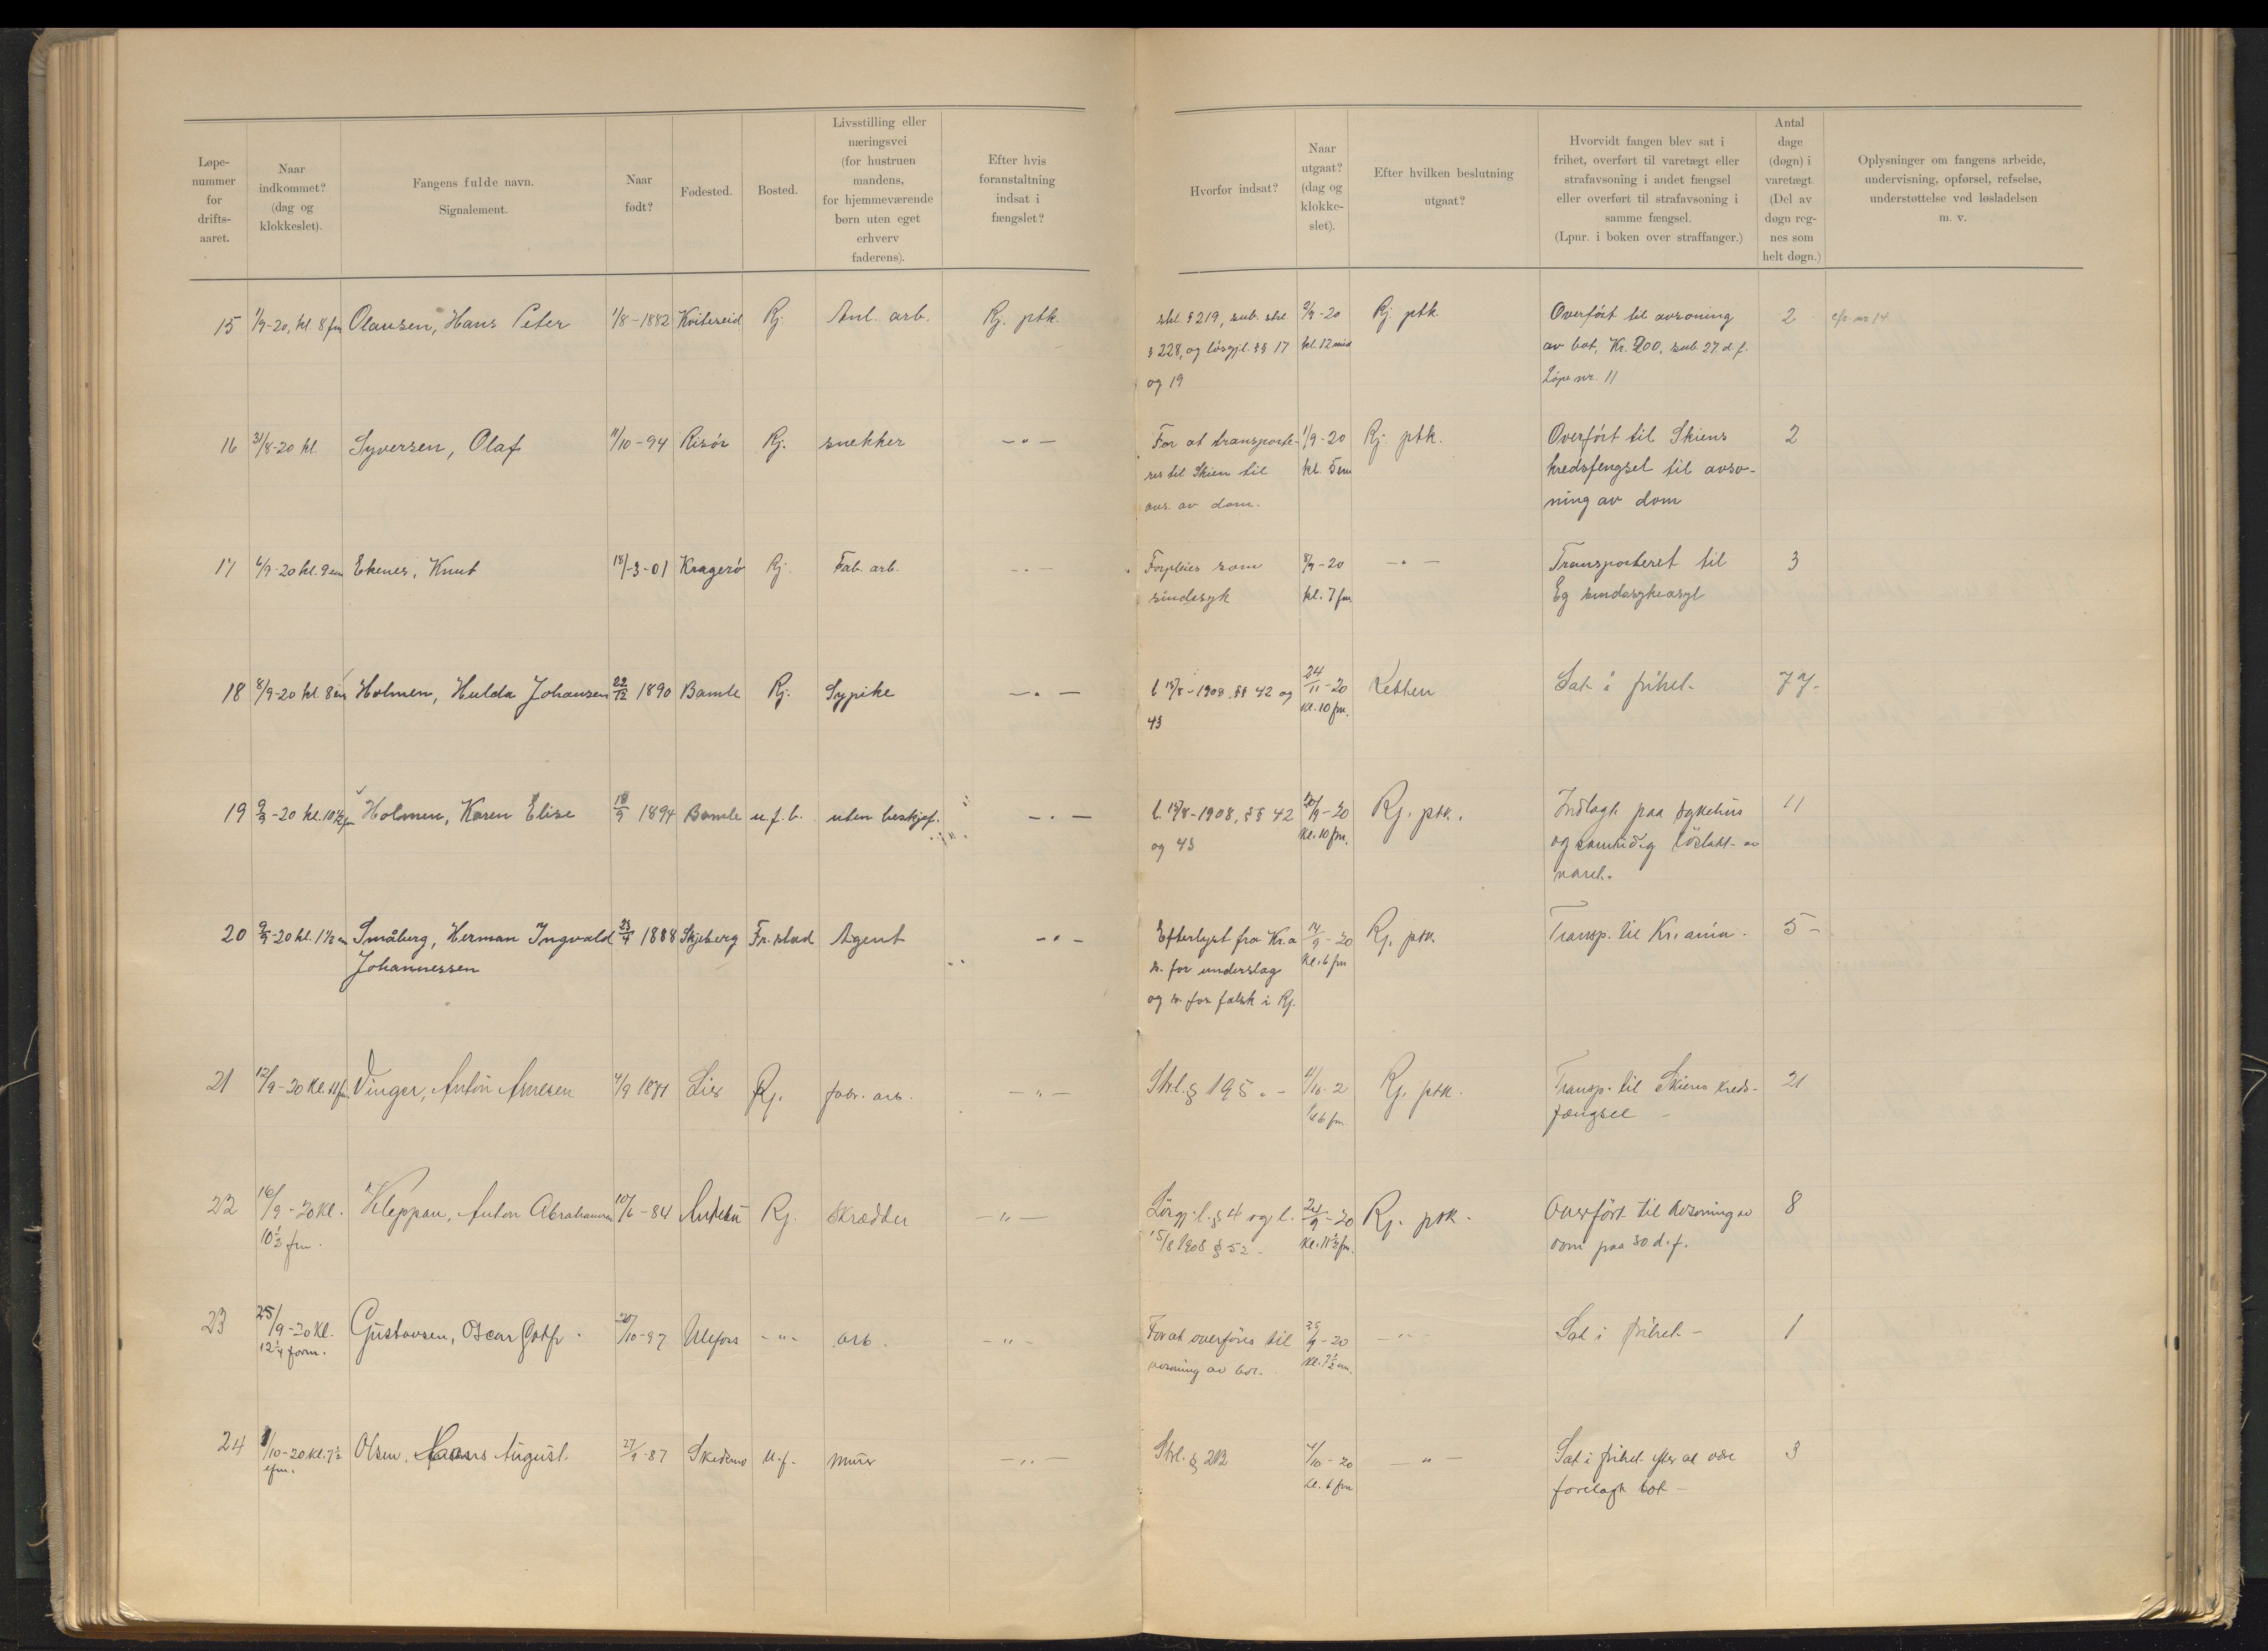 Løpe-
nummer
for
drifts-
aaret.
Naar
indkommet?
(dag og
klokkeslet).
Fangens fulde navn.
Signalement.
Naar
født?
Fødested.
Bosted.
Livsstilling eller
næringsvei
(for hustruen
mandens,
for hjemmeværende
børn uten eget
erhverv
faderens).
Efter hvis
foranstaltning
indsat i
fængslet?
Hvorfor indsat?
Naar
utgaat?
(dag og
klokke-
slet).
Efter hvilken beslutning
utgaat?
Hvorvidt fangen blev sat i
frihet, overført til varetægt eller
strafavsoning i andet fængsel
eller overført til strafavsoning i
samme fængsel.
(Lpnr. i boken over straffanger.)
Antal
dage
(døgn) i
varetægt.
(Del av
døgn reg-
nes som
helt døgn.)
Oplysninger om fangens arbeide,
undervisning, opførsel, refselse,
understøttelse ved løsladelsen
m. v.
15 1/9-20, kl. 8 fm Olausen, Hans Peter 1/8-1882 Kviteseid Rj. Anl. arb. Rj. ptk. strl. § 219, sub. strl. 2/9-20 Rj. ptk. Overført til avsoning 2 cfr. nr 14
§ 228, og løsgjl. §§ 17 kl. 12 mid av bot, Kr. 200, sub. 27 d. f.
og 19 Løpe nr. 11
16 31/8-20 kl. Syversen, Olaf 11/10-94 Risør Rj. snekker -"- For at transporte- 1/9-20 Rj. ptk. Overført til Skiens 2
res til Skien til kl. 5 em kredsfengsel til avso-
avs. av dom. ning av dom
17 6/9-20 kl. 9 em Ekenes, Knut 18/-3-01 Kragerø Rj. Fab. arb. -"- Forpleies som 8/9-20 -"- Transporteret til 3
sindssyk kl. 7 fm Eg sindssykeasyl
18 8/9-20 kl. 8 em Holmen, Hulda Johansen 22/12 1890 Bamle Rj. Sypike -"- l 15/8-1908 §§ 42 og 24/11-20 Retten Sat i frihet 77-
43 kl. 10 fm.
19 9/9-20 kl. 10 1/2 fm Holmen, Karen Elise 18/9 1894 Bamle u. f. b. uten beskjef. -"- l. 15/8-1908, §§ 42 /9-20 Rj. ptk. Indlagt paa sykehus 11
og 43 kl. 10 fm. og samtidig løslatt av
varet.
20 9/9-20 kl. 1 1/2 em Småberg, Herman Ingvald 23/4 1888 Skjeberg Fr.stad Agent -"- Efterlyst fra Kr.a 14/9-20 Rj. ptk. Transp. til Kr.ania. 5-
Johannessen s. for underslag kl. 6 fm
og s. for falsk i Rj.
21 12/9-20 Kl. 11 fm. Vinger, Anton Arnesen 4/9 1871 Lier Rj. fabr. arb. -"- Strl. § 195.- /10-2 Rj. ptk. Transp. til Skiens kreds- 21
kl 6 fm fængsel -
22 16/9-20 Kl. Kleppan, Anton Abrahamsen 10/6-84 Andebu Rj. Skrædder -"- Løsgj. l. § 4 og l. /9-20 Rj. ptk. Overført til Avsoning av 8
10 1/2 fm. 15/8 1908 § 52- kl. 11 1/2 fm. dom paa 30 d. f.
23 25/9-20 Kl. Gustavsen, Oscar Gotfr. /10-97 Ulefoss -"- arb. -"- For at overføres til 25/9-20 -"- Sat i frihet- 1
12 1/4 form. avsoning av bot. kl. 7 1/2 em.
24 /10-20 kl. 7 1/2 Olsen, August. 27/9-87 Skedsmo u. f. murer -"- Strl. § 2 4/10-20 -"- Sat i frihet efter at være 3
efm. kl. 6 fm forelagt bot-